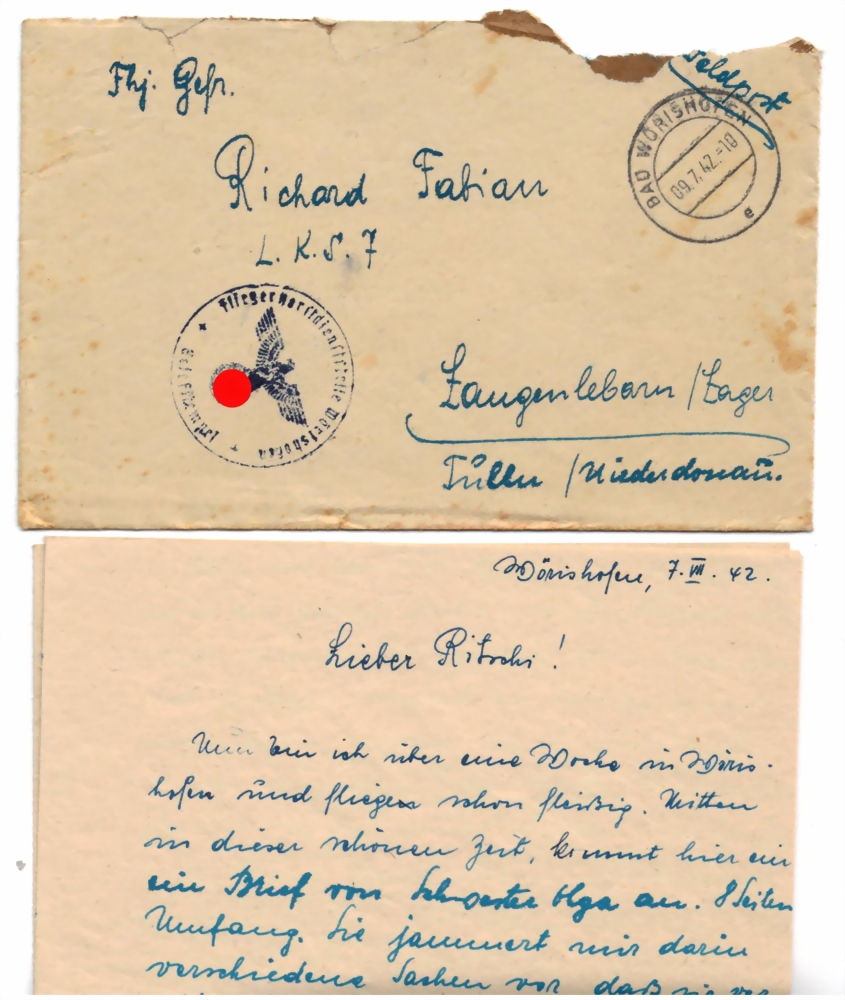 Feldpost
Fhj. Gefr.
BAD WÖRISHOFEN
09.7.42.-18
e
Richard Fabian
L.K.S. 7
Fliegerhorstdienststelle Wörishofen
Langenlebarn / Lager
Tulln / Niederdonau.
Wörishofen, 7. VII. 42.
Lieber Ritschi!
Nun bin ich über eine Woche in Wöris-
hofen und fliegen schon fleißig. Mitten
in dieser schönen Zeit, kommt hier ein
ein Brief von Schwester Olga an. 8 Seiten
Umfang. Sie jammert mir darin
verschiedene Sachen vor, daß sie